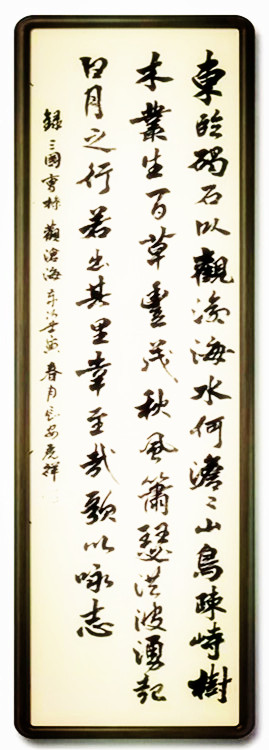 東臨碣石以觀滄海水何澹〻山鳥竦峙樹
木業生百草豐茂秋風簫瑟洪波湧起
日月之行若出其里幸至哉歌以咏志
録三國曹操觀滄海岁次壬寅春月长安